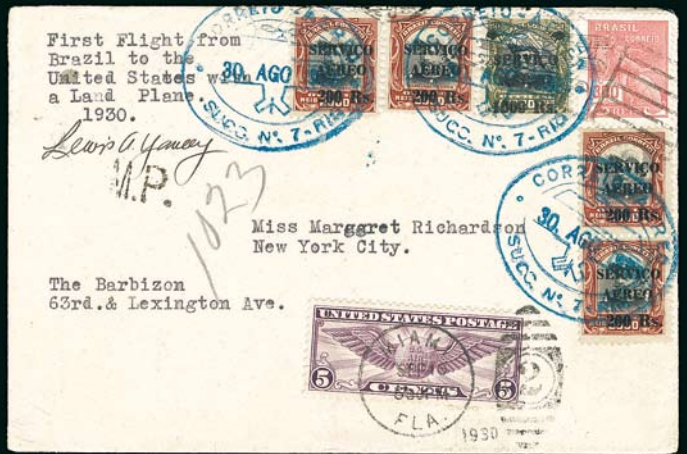 First Flight from
Brazil to the
United States with
a Land Plane.
1930.
Lewis A. Yancey
M.P.
1023
Miss Marggret Richardson
New York City.
The Barbizon
63rd.& Lexington Ave.
CORREIO
30. AGO
SUCC. Nº. 7-RIO
SERVIÇO
AÉREO
200 Rs.
SERVIÇO
AÉREO
200 Rs.
SERVIÇO
1000 Rs.
SUCC. Nº. 7-RIO
BRASIL
CORREIO
300
CORREIO
30. AGO
SUCC. Nº. 7
SERVIÇO
AÉREO
200 Rs.
SERVIÇO
AÉREO
200 Rs.
UNITED STATES POSTAGE
5 CENTS 5
MIAMI
FLA.
1930
2